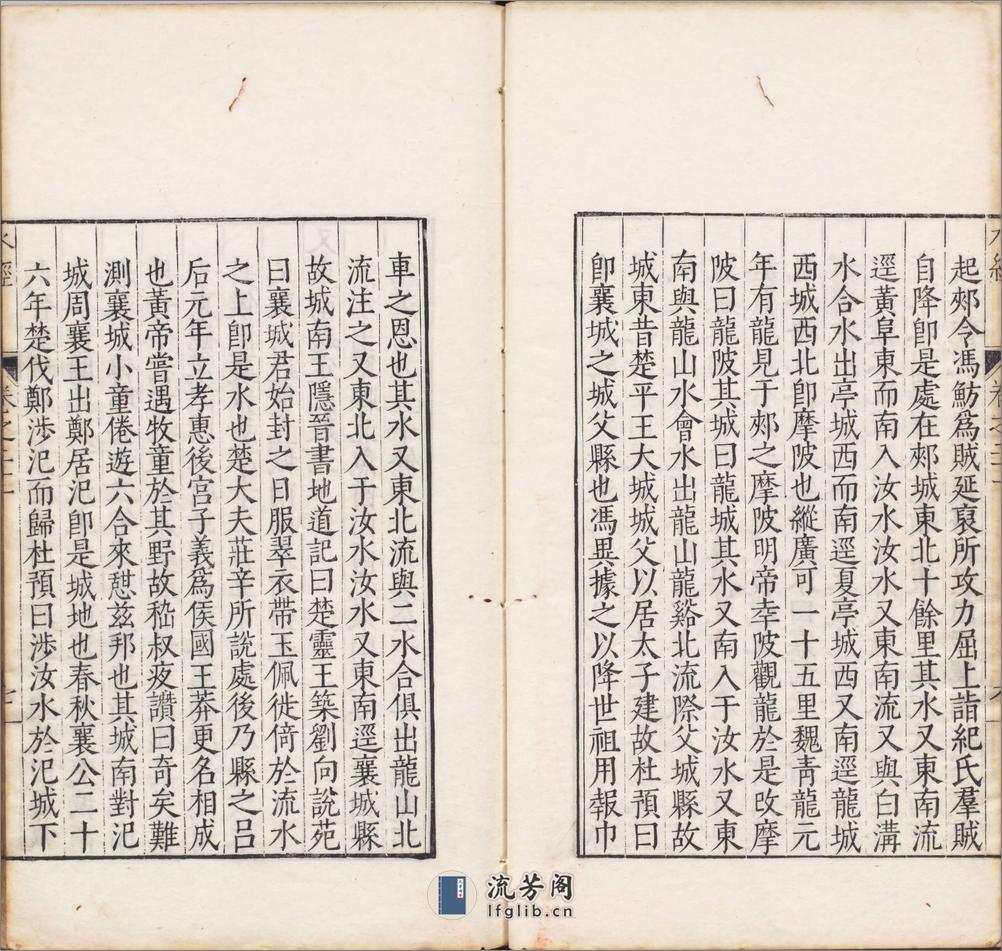 起郟令馮魴爲賊延裒所攻力屈上詣紀氏羣賊
自降卽是處在郟城東北十餘里其水又東南流
逕黃阜東而南入汝水汝水又東南流又與白溝
水合水出亭城西而南逕夏亭城西又南逕龍城
西城西北卽摩陂也縱廣可一十五里魏靑龍元
年有龍見于郟之摩陂明帝幸陂觀龍於是改摩
陂曰龍陂其城曰龍城其水又南入于汝水又東
南與龍山水會水出龍山龍谿北流際父城縣故
城東昔楚平王大城城父以居太子建故杜預曰
卽襄城之城父縣也馮異據之以降世祖用報巾
車之恩也其水又東北流與二水合俱出龍山北
流注之又東北入于汝水汝水又東南逕襄城縣
故城南王隱晉書地道記曰楚靈王築劉向說苑
曰襄城君始封之日服翠衣帶玉佩徙倚於流水
之上卽是水也楚大夫莊辛所說處後乃縣之呂
后元年立孝惠後宮子義爲侯國王莽更名相成
也黃帝嘗遇牧童於其野故嵇叔夜讚曰奇矣難
測襄城小童倦遊六合來憇兹邦也其城南對汜
城周襄王出鄭居汜卽是城地也春秋襄公二十
六年楚伐鄭涉汜而歸杜預曰涉汝水於汜城下
水經
流芳阁
lfglib.cn